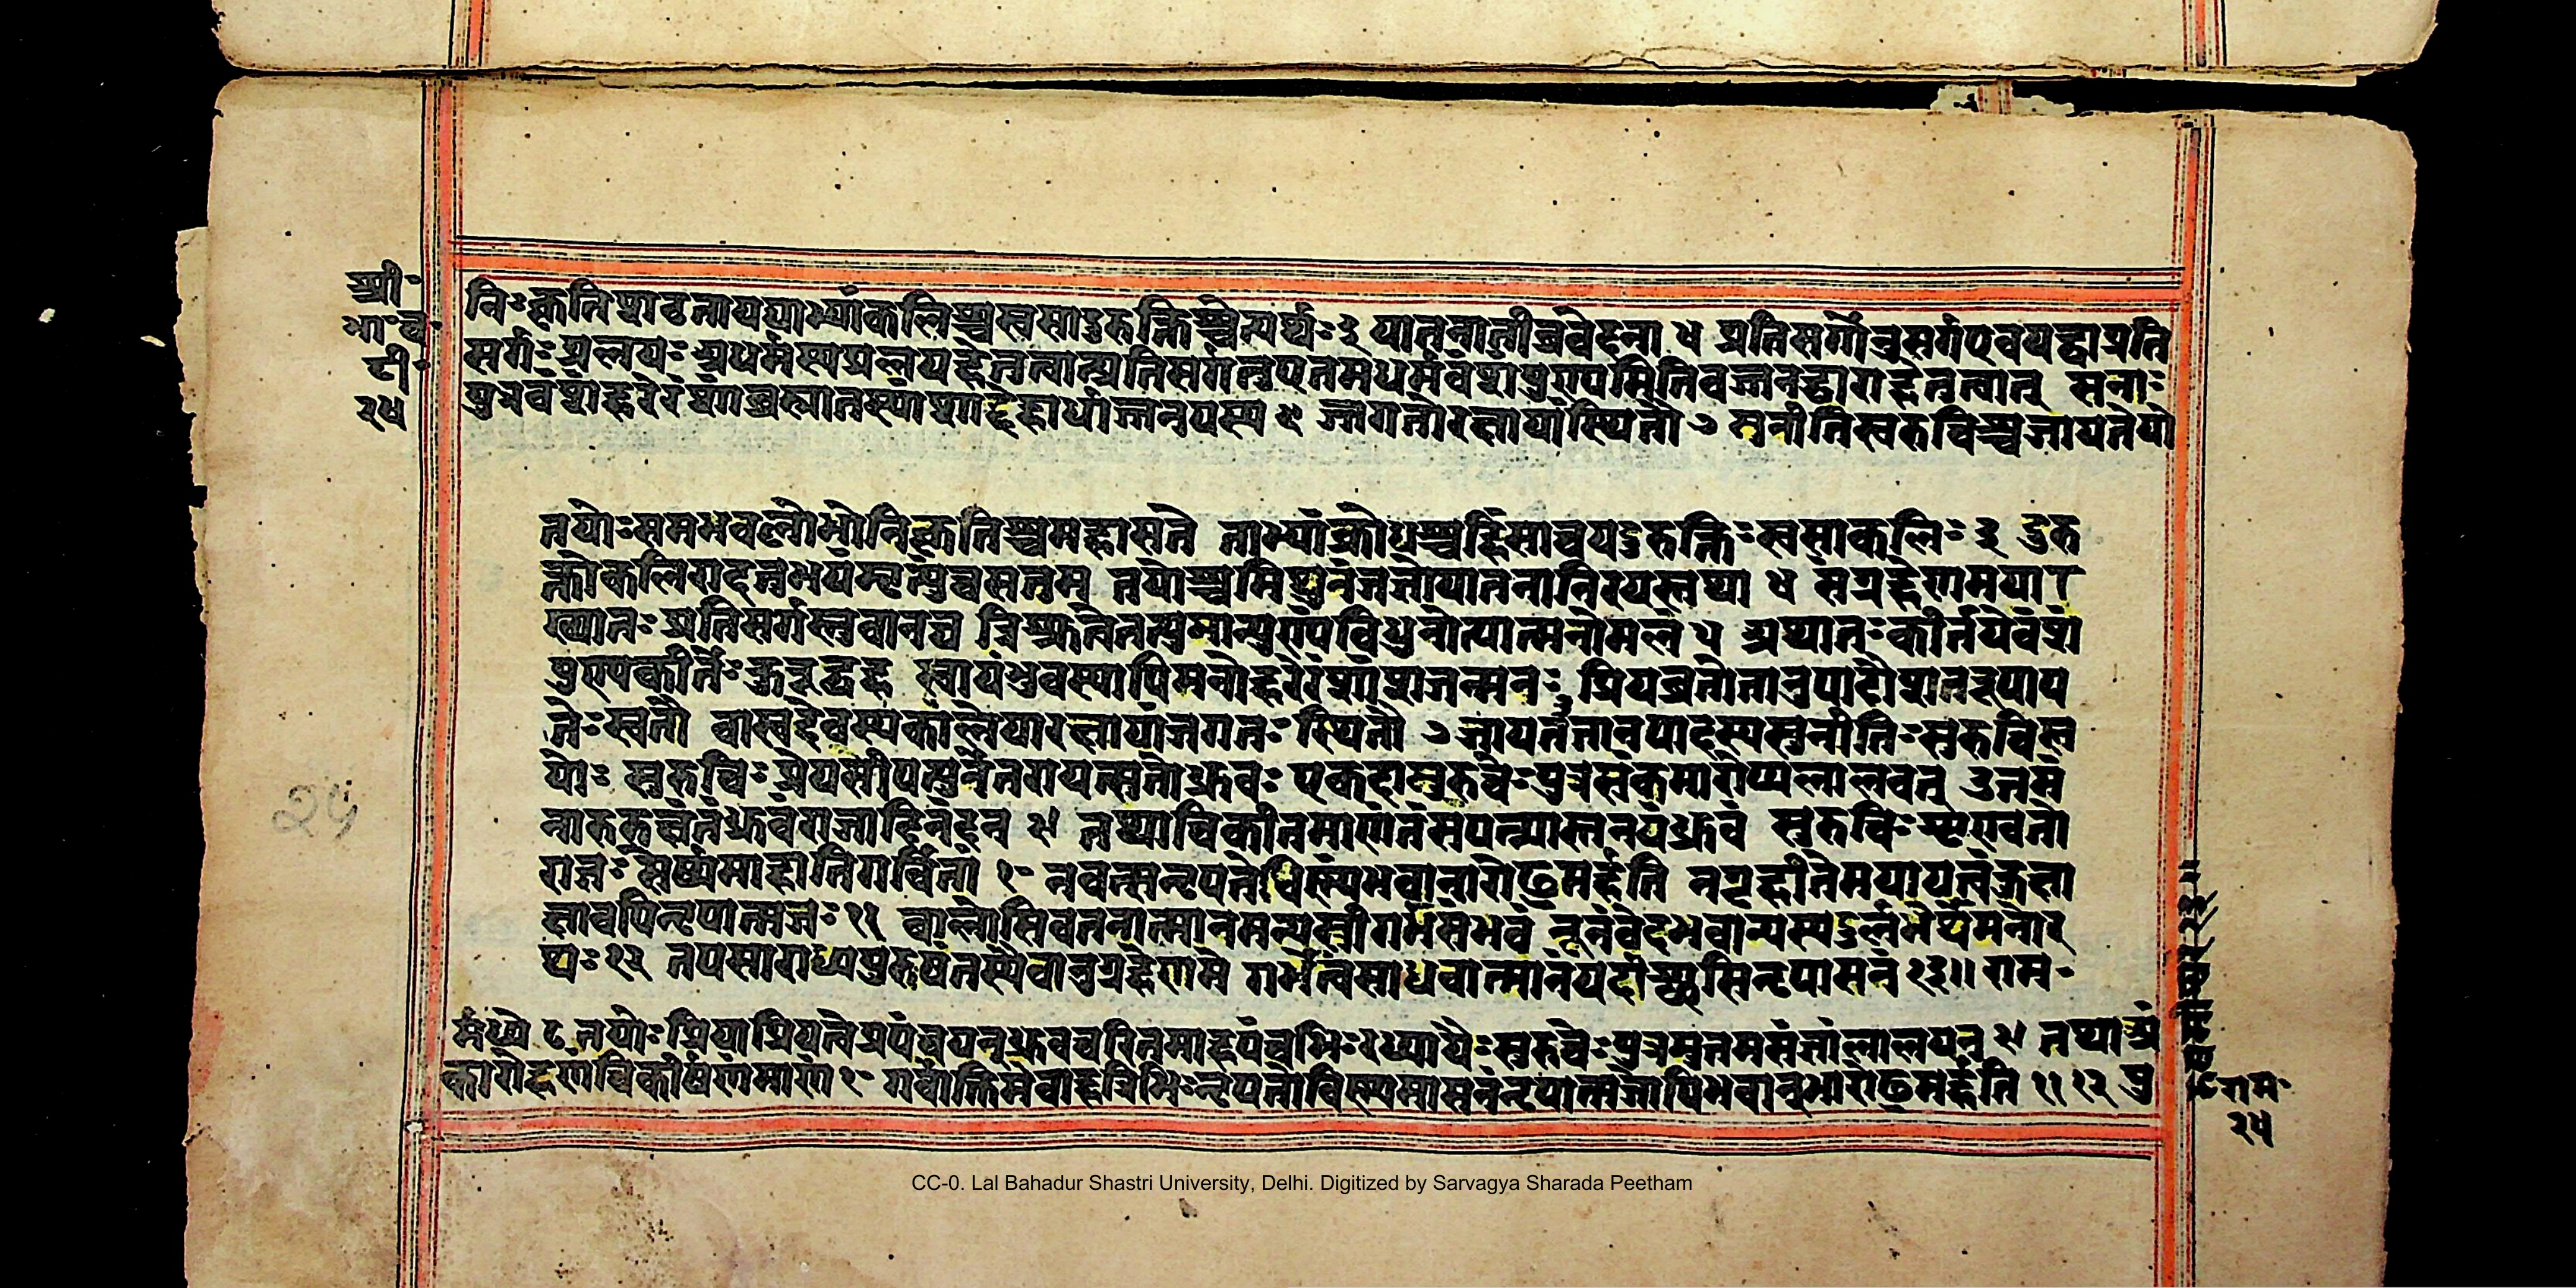 श्री॰
भा॰च॰
टी॰
२५
निःकृतिशठतायययाभ्यांकलिश्चस्वसादुरुक्तिश्चेत्यर्थः३ यातनातीव्रवेदना ४ प्रतिसर्गोनुसर्गएवयद्वाप्रति
सर्गःप्रलयःअधर्मस्यप्रलयहेतुत्वात्प्रतिसर्गत्वएतमधर्मवंशपुण्यमितिवर्जनद्वाराहेतुत्वात् सना
पुत्रवंशोहरेरंशोब्रह्मातस्यांशाद्देहार्धाज्जन्मयस्य ६ जगतोरक्षायांस्थितौ ७ सुनीतिसुरुचिश्चजायेतयो
तयोःसमभवल्लोभोनिकृतिश्चमहामते ताभ्यांक्रोधश्चहिंसाचयदुरुक्तिःस्वसाकलिः ३ दुरु
क्तौकलिराधत्तभयंमृत्युंचसत्तम तयोश्चमिथुनंजज्ञेयातनानिरयस्तथा ४ संग्रहेणमया
ख्यातःप्रतिसर्गस्तवानघ त्रिःश्रुत्वैतत्पुमान्पुण्यंविधुनोत्यात्मनोमलं ५ अथातःकीर्तयेवंशं
पुण्यकीर्तेःकुरूद्वह स्वायंभुवस्यापिमनोहरेरंशांशजन्मनः ६ प्रियव्रतोत्तानुपादौशतरूपाप
तेःसुतौ वासुदेवस्यकलयारक्षायांजगतःस्थितौ ७ जायेउत्तानपादस्यसुनीतिःसुरुचिस्त
योः सुरुचिःप्रेयसीपत्युर्नेतरायत्सुतोध्रुवः एकदासुरुचेःपुत्रमंकमारोप्यलालयन् उत्तमं
नारुरुक्षंतंध्रुवंराजाभिनंदत ९ तथाचिकीर्षमाणंतंसपत्न्यास्तनयंध्रुवं सुरुचिःशृण्वतो
राज्ञःसेर्ष्यमाहातिगर्विता १० नवत्सनृपतेर्धिष्ण्यंभवानारोढुमर्हति नगृहीतोमयायत्त्वंकुक्षा
क्षावपिनृपात्मजः११ बालोसिबतनात्मानमन्यस्त्रीगर्भसंभवं नूनंवेदभवान्यस्यदुर्लभेर्थेमनोर
थः१२ तपसाराध्यपुरुषंतस्यैवानुग्रहेणमे गर्भेत्वंसाधयात्मानंयदीच्छसिनृपासनं १३॥ राम॰
र्मध्ये ८ तयोःप्रियाप्रियत्वेप्रपंचयन्ध्रुवचरितमाहपंचभिःरध्यायैःसुरुचेःपुत्रमुत्तमसंज्ञंलालयन् ९ तथाअं
कारोहणंचिकीर्षमाणं १० गर्वोक्तिमेवाहत्रिभिःनृपतेर्धिष्ण्यमासनंनृपात्मजोपिभवान्नआरोढुमर्हति ११ १२ पु
राम॰
२५
२५
CC-0. Lal Bahadur Shastri University, Delhi. Digitized by Sarvagya Sharada Peetham